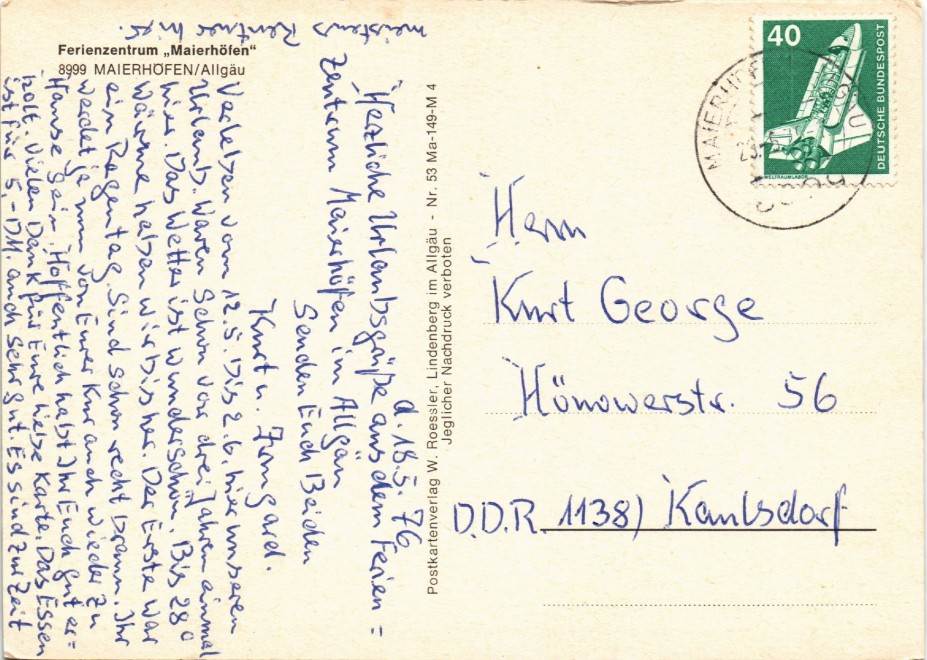 Ferienzentrum „Maierhöfen“
8999 MAIERHÖFEN/Allgäu
d. 18.5.76
Herzliche Urlaubsgrüße aus dem Ferien=
zentrum Maierhöfen im Allgäu
senden Euch Beiden
Kurt u. Irmgard.
Verleben vom 12.5. bis 2.6. hier unseren
Urlaub. Waren schon vor drei Jahren einmal
hier. Das Wetter ist wunderschön. Bis 28°
Wärme haben wir bisher. Der Erste war
ein Regentag. Sind schon recht braun. Ihr
werdet ja nun von Eurer Kur auch wieder zu
Hause sein. Hoffentlich habt Ihr Euch gut er=
holt. Vielen Dank für Eure liebe Karte. Das Essen
ist für 5,-DM. auch sehr gut. Es sind zur Zeit
meistens Rentner hier.
Postkartenverlag W. Roessler, Lindenberg im Allgäu - Nr. 53 Ma-149-M 4
Jeglicher Nachdruck verboten
40
DEUTSCHE BUNDESPOST
WELTRAUMLABOR
Herrn
Kurt George
Hönowerstr. 56
D.D.R. 1138) Kaulsdorf